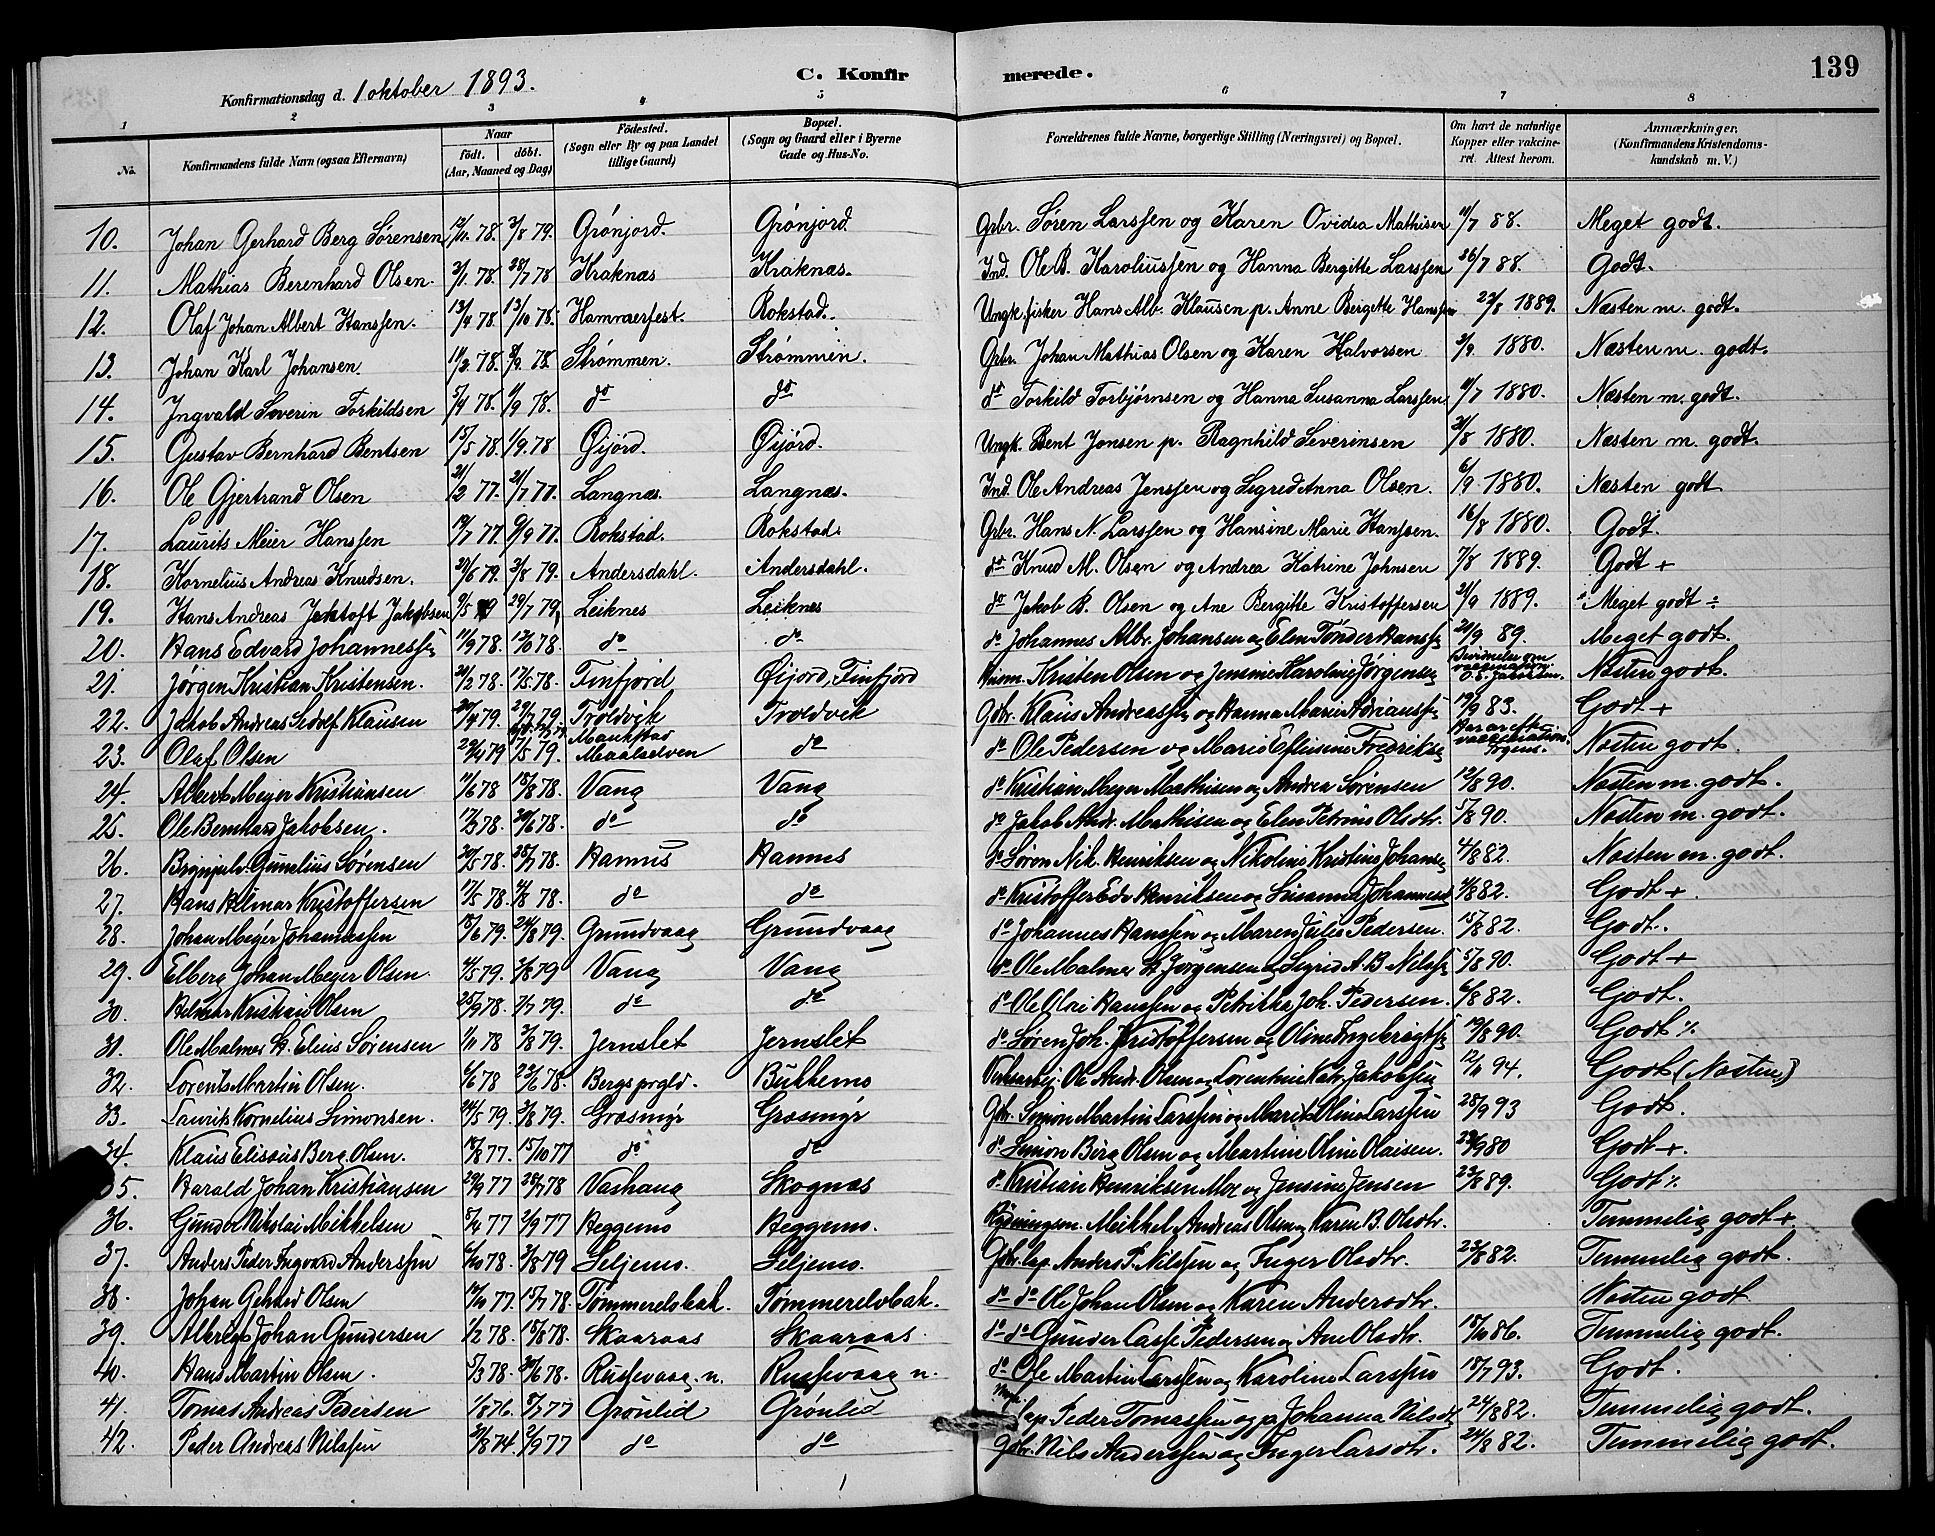 139
C. Konfirmerede.
Konfirmationsdag d. 1 oktober 1893.
1 2 3 4 5 6 7 8
No.
Konfirmandens fulde Navn (ogsaa Efternavn)
Naar
födt. döbt.
(Aar, Maaned og Dag)
Födested.
(Sogn eller By og paa Landet
tillige Gaard)
Bopæl.
(Sogn og Gaard eller i Byerne
Gade og Hus-No.
Forældrenes fulde Navne, borgerlige Stilling (Næringsvei) og Bopæl.
Om havt de naturlige
Kopper eller vakcine-
ret. Attest herom.
Anmærkninger.
(Konfirmandens Kristendoms-
kundskab m. V.)
10. Johan Gerhard Berg Sørensen 78. 3/8 79. Grønjord. Grønjord. Grbr. Søren Larssen og Karen Ovidea Mathisen 11/7 88. Meget godt.
11. Mathias Berenhard Olsen. 3/1 78. 28/7 78 Kraknæs Kraknæs. Ind. Ole B. Karoliussen og Hanna Bergitte Larssen 26/7 88. Godt.
12. Olaf Johan Albert Hanssen. 13/4 78. 13/10 78. Hammerfest. Rokstad. Ungk. fisker Hans Alb. Klausen p. Anne Bergette Hanssen 23/8 1889. Næsten m. godt.
13. Johan Karl Johansen. 11/2 78. 8/9 78. Strømmen. Strømmen. Grbr. Johan Mathias Olsen og Karen Halvorsen 3/9 1880. Næsten m. godt.
14. Ingvald Severin Torkildsen 5/4 78. 1/9 78. do do do Torkild Torbjørnsen og Hanna Susanna Larssen 11/7 1880. Næsten m. godt.
15. Gustav Bernhard Bentsen 15/5 78. 1/9. 78 Øijord. Øijord. Ungk. Bent Jonsen p. Ragnhild Severinsen 31/8 1880. Næsten m. godt.
16. Ole Gjertrand Olsen 21/2 77. 21/7 77. Langnæs. Langnæs. Ind. Ole Andreas Jenssen og Sigred Anna Olsen. 6/9 1880. Næsten godt
17. Laurits Meier Hanssen 19/7 77. 9/9 77. Rokstad. Rokstad. Grbr. Hans N. Larssen og Hansine Marie Hanssen. 16/8 1880. Godt.
18. Kornelius Andreas Knudsen. 79. 3/8 79. Andersdahl. Andersdahl. do Knud M. Olsen og Andrea Katrine Johnsen 7/8 1889. Godt +
19. Hans Andreas Jentoft Jakobsen 9/5 79 29/7 79. Leiknes Leiknes do Jakob B. Olsen og Ane Bergitte Kristoffersen 21/9 1889. Meget godt ÷
20. Hans Edvard Johannessen 11/9 78. 78. do do do Johannes Albr. Johansen og Elen Tønder Hanssen 21/9 89. Meget godt.
21. Jørgen Kristian Kristensen. 21/2 78. 17/5 78. Finfjord Øijord, Finfjord Kristen Olsen og Jensine Karoline Jørgensen vaccination Næsten godt.
22. Jakob Andreas Sedolf Klausen 20/4 79. 29/7 79. Troldvik Troldvik Gdbr. Klaus Andreassen og Hanna Marie Adrianssen 19/9 83. Godt +
23. Olaf Olsen 79 17/5 79. Maukstad Maalselven do do Ole Pedersen og Marie Efusine Fredriksen Næsten godt.
24. Albert Meyer Kristiansen 11/6 78 18/8 78. Vang Vang do Kristian Meyer Mathisen og Andrea Sørensen 12/8 90. Næsten m. godt.
25. Ole Bernhard Jakobsen. 17/3 78. 30/6 78. do do do Jakob Andr. Mathisen og Elen Petrine Olsdtr. 5/8 90. Næsten m. godt.
26. Brynjulv Gunelius Sørensen 30/5 78. 28/7 78. Hannes Hannes do Søren Nik. Henriksen og Nikoline Kristine Johansen 4/8 82. Næsten m. godt.
27. Hans Hilmar Kristoffersen 17/5 78. 4/8 78. do do do Kristoffer Edv. Henriksen og Susanna Johannesd 4/8 82. Godt +
28. Johan Meyer Johannessen 18/6 79. 24/8 79. Grundvaag Grundvaag do Johannes Hanssen og Maren Julie Pedersen. 15/8 82. Godt.
29. Elberg Johan Meyer Olsen. 4/5 79. 3/8 79 Vang Vang do Ole Malmes St. Jørgensen og Sigrid A. B. Nilssen 5/8 90. Godt +
30. Helmar Kristian Olsen 25/9 78. 79. do do do Ole Olai Hanssen og Petrikke Joh. Pedersen. 6/8 82. Godt.
31. Ole Malmes St. Elius Sørensen 1/11 78 3/8 79. Jernslet Jernslet do Søren Joh. Kristoffersen og Oline Ingebrigtsen 19/8 90. Godt %
32. Lorents Martin Olsen. 4/6 78 23/6 78. Bergs prgld. Bukkemo Ole Andr. Olsen og Lorentine Katr. Jakobsen 12/11 94. Godt (Næsten)
33. Laurits Kornelius Simonsen. 24/5 79. 3/8 79. Græsmyr Græsmyr Gbr. Simon Martin Larssen og Marit Oline Larssen 28/9 93 Godt.
34. Klaus Elisæus Berg Olsen. 18/8 77. 15/10 77 do do do Simon Berg Olsen og Martine Oline Olaisen. 80 Godt +.
35. Harald Johan Kristiansen 29/9 77 28/7 78 Vashaug Skognæs do Kristian Henriksen Moe og Jensine Jensen 23/8 89. Godt %
36. Gunder Nikolai Mikkelsen 5/4 77 2/9 77 Heggemo Heggemo. Mikkel Andreas Olsen og Karen B. Olsdtr. Temmelig godt +
37. Anders Peder Ingvard Anderssen 6/10 78. 3/8 79 Seljemo. Seljemo. Gbr. lap. Anders P. Nilssen og Inger Olsdtr. 23/8 82. Temmelig godt.
38. Johan Gerhard Olsen 77. 15/7 78. Tømmerelvbak. Tømmerelvbak. do do Ole Johan Olsen og Karen Andersdtr. Næsten godt
39. Albrigt Johan Gundersen 1/2 78. 18/8 78. Skaaraas Skaaraas. do do Gunder Lasse Pedersen og Ane Olsdtr. 86. Temmelig godt.
40. Hans Martin Olsen. 5/3 78. 30/6 78. Russevaag n. Russevaag n. do Ole Martin Larssen og Karoline Larssen 18/7 93. Godt.
41. Tomas Andreas Pedersen 1/8 76. 77 Grønlid Grønlid lap Peder Tomassen og p. Johanna Nilsdt. 24/8 82. Temmelig godt.
42. Peder Andreas Nilssen 74. 2/9 77 do do Gdbr. Nils Anderssen og Inger Larsdtr. 24/8 82. Temmelig godt.